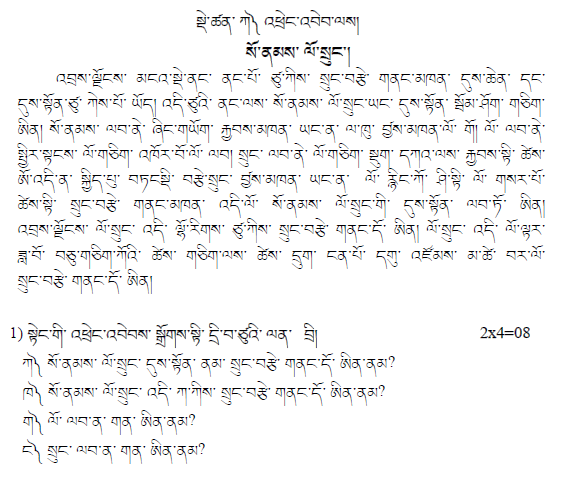 སྡེ་ཚན་ ཀ༽ འཕྲེང་འབེབ་ལས།
སོ་ནམས་ ལོ་སྲུང་།
འབྲས་ལྗོངས་ མངའ་སྡེ་ནང་ ནང་པོ་ ཙུ་ཀིས་ སྲུང་བརྩེ་ གནང་མཁན་ དུས་ཆེན་ དང་
དུས་སྟོན་ཙུ་ ཀེས་པོ་ ཡོད། འདི་ཙུའི་ ནང་ལས་ སོ་ནམས་ ལོ་སྲུང་ཡང་ དུས་སྟོན་ སྦོམ་ཤོག་ གཅིག་
ཨིན། སོ་ནམས་ ལབ་ནེ་ ཞིང་གཡོག་ རྐྱབས་མཁན་ ཡང་ན་ ལ་ཁུ་ བྱས་མཁན་ལོ་ གོ། ལོ་ ལབ་ནེ་
སྤྱིར་སྟངས་ ལོ་གཅིག་ འཁོར་བོ་ལོ་ ལབ། སྲུང་ ལབ་ནེ་ ལོ་གཅིག་ སྡུག་ དཀའ་ལས་ རྐྱབས་སྟི་ ཚེས་
ཨོ་འདི་ན་ སྐྱིད་པུ་ བཏང་སྡི་ བརྩེ་སྲུང་ བྱས་མཁན་ ཡང་ན་ ལོ་ རྙིང་ཀོ་ ཤི་སྟི་ ལོ་ གསར་པོ་
ཚེས་སྟི་ སྲུང་བརྩེ་ གནང་མཁན་ འདི་ལོ་ སོ་ནམས་ ལོ་སྲུང་གི་ དུས་སྟོན་ ལབ་ཏོ་ ཨིན།
འབྲས་ལྗོངས་ ལོ་སྲུང་ འདི་ ལྷོ་རིགས་ ཙུ་ཀིས་ སྲུང་བརྩེ་ གནང་དོ་ ཨིན། ལོ་སྲུང་ འདི་ ལོ་ལྟར་
ཟླ་བོ་ བཅུ་གཅིག་ཀོའི་ ཚེས་ གཅིག་ལས་ ཚེས་ དྲུག་ ངན་པོ་ དགུ་ འཛོམས་ མ་ཚེ་ བར་ལོ་
སྲུང་བརྩེ་ གནང་དོ་ ཨིན།
1) སྟེང་གི་ འཕྲེང་འབེབས་ སྒྲོགས་སྟི་ དྲི་བ་ཙུའི་ ལན་ བྲི། 2x4=08
ཀ༽ སོ་ནམས་ ལོ་སྲུང་ དུས་སྟོན་ ནམ་ སྲུང་བརྩེ་ གནང་དོ་ ཨིན་ནམ?
ཁ༽ སོ་ནམས་ ལོ་སྲུང་ འདི་ ཀ་ཀིས་ སྲུང་བརྩེ་ གནང་དོ་ ཨིན་ནམ?
ག༽ ལོ་ ལབ་ན་ གན་ ཨིན་ནམ?
ང༽ སྲུང་ ལབ་ན་ གན་ ཨིན་ནམ?